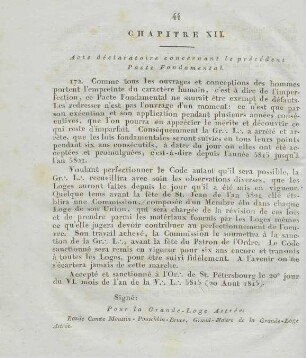 44
CHAPITRE XII.
Acte déclaratoire concernant le précédent
Pacte Fondamental.
172. Comme tous les ouvrages et conceptions des hommes
portent l'empreinte du caractère humain, c'est à dire de l'imper-
fection, ce Pacte Fondamental ne sauroit être exempt de défauts.
Les redresser n'est pas l'ouvrage d'un moment: ce n'est que par
son exécution et son application pendant plusieurs années consé-
cutives, que l'on pourra en apprécier le mérite et découvrir ce qui
reste d'imparfait. Conséquemment la Gr.·. L.·. a arrêté et décrété,
que les lois fondamentales seront suivies en tous leurs points
pendant six ans consécutifs, à dater du jour où elles ont été ac-
ceptées et promulguées, c'est-à-dire depuis l'année 1815 jusqu'à
l'an 1821.
Voulant perfectionner le Code autant qu'il sera possible, la Gr.·.
L.·. recueillira avec soin les observations diverses, que les
Loges auront faites depuis le jour qu'il a été mis en vigueur.
Quelque tems avant la fête de St. Jean de l'an elle
établira une Commission, composée d'un Membre élu dans chaque
Loge de son Union, qui sera chargée de la révision de ces lois
et de prendre parmi les matériaux fournis par les Loges même
ce qu'elle jugera devoir contribuer au perfectionnement de ce Code.
Son travail achevé, la Commission le soumettra à la sanction
de la Gr.·. L.·., avant la fête du Patron de l'Ordre. Le Code
sanctionné sera remis en vigueur pour six ans encore et transmis
à toutes les Loges, pour être suivi fidèlement. A l'avenir on ne
s'écartera jamais de cette marche.
Accepté et sanctionné à l'Or.·. de St. Pétersbourg le 20e jour
du VI. mois de l'an de la V.·. L.·. 5815 (20 Août 1815).
Signé:
Pour la Grande-Loge Astrée:
Comte Moussin-Pouschkin-Bruce, Grand-Maître de la Grande-Loge
Astrée.